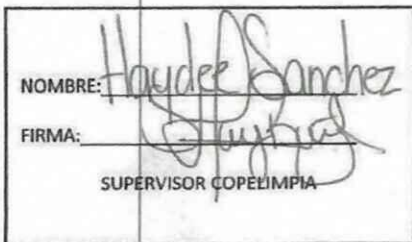 NOMBRE: Haydee Sanchez
FIRMA:
SUPERVISOR COPELIMPIA